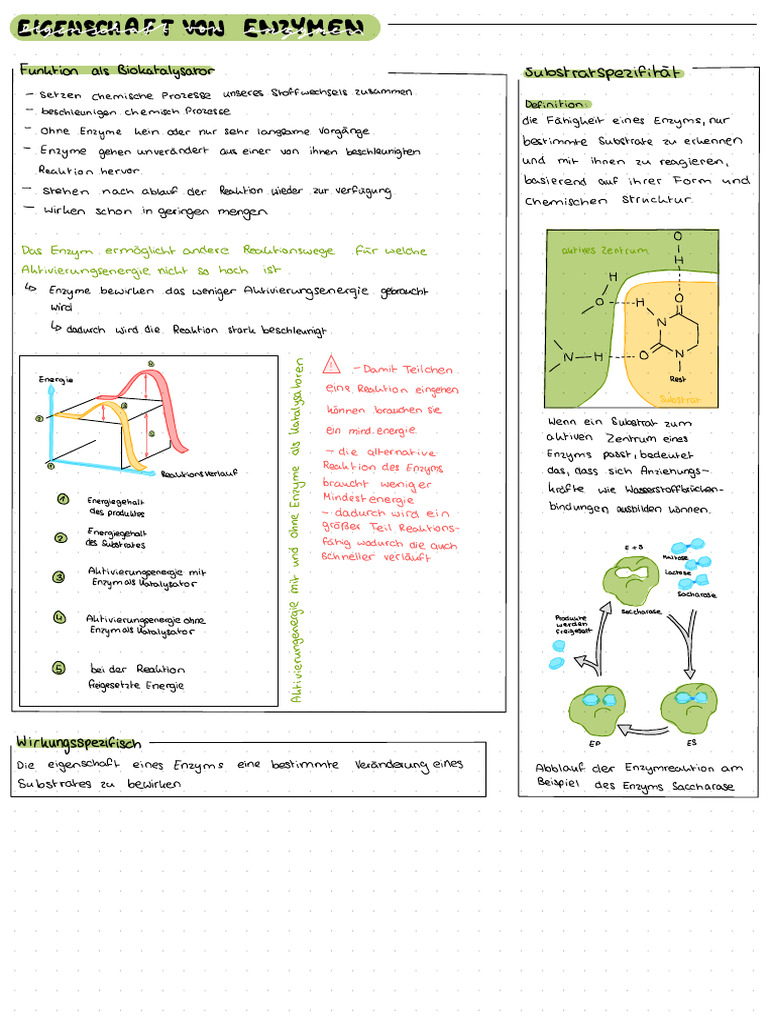 EIGENSCHAFT VON ENZYMEN
Funktion als Biokatalysator
- setzen chemische Prozesse unseres Stoffwechsels zusammen
- beschleunigen chemisch Prozesse
- ohne Enzyme kein oder nur sehr langsame Vorgänge
- Enzyme gehen unverändert aus einer von ihnen beschleunigten
Reaktion hervor
- stehen nach ablauf der Reaktion wieder zur verfügung
- wirken schon in geringen mengen
Das Enzym ermöglicht andere Reaktionswege für welche
Aktivierungsenergie nicht so hoch ist
↳ Enzyme bewirken das weniger Aktivierungsenergie gebraucht
wird
↳ dadurch wird die Reaktion stark beschleunigt
Energie
Reaktionsverlauf
1 Energiegehalt
des produktes
2 Energiegehalt
des Substrates
3 Aktivierungsenergie mit
Enzym als Katalysator
4 Aktivierungenergie ohne
Enzym als Katalysator
5 bei der Reaktion
freigesetzte Energie
Aktivierungenergie mit und ohne Enzyme als Katalysatoren
! - Damit Teilchen
eine Reaktion eingehen
können brauchen sie
ein mind. energie
- die alternative
Reaktion des Enzyms
braucht weniger
Mindestenergie
- dadurch wird ein
größer Teil Reaktions-
fähig wodurch die auch
schneller verläuft
Wirkungsspezifisch
Die eigenschaft eines Enzyms eine bestimmte Veränderung eines
Substrates zu bewirken
Substratspezifität
Definition:
die Fähigkeit eines Enzyms, nur
bestimmte Substrate zu erkennen
und mit ihnen zu reagieren,
basierend auf ihrer Form und
Chemischen Struktur.
aktives Zentrum
O
H
H
O
H
O
N
N
H
O
N
Rest
Substrat
Wenn ein Substrat zum
aktiven Zentrum eines
Enzyms passt, bedeutet
das, dass sich Anziehungs-
kräfte wie Wasserstoffbrücken-
bindungen ausbilden können.
E + S
Maltose
Lactose
Sacharose
Saccharase
Produkte
werden
freigesetzt
EP
ES
Abblauf der Enzymreaktion am
Beispiel des Enzyms Saccharase